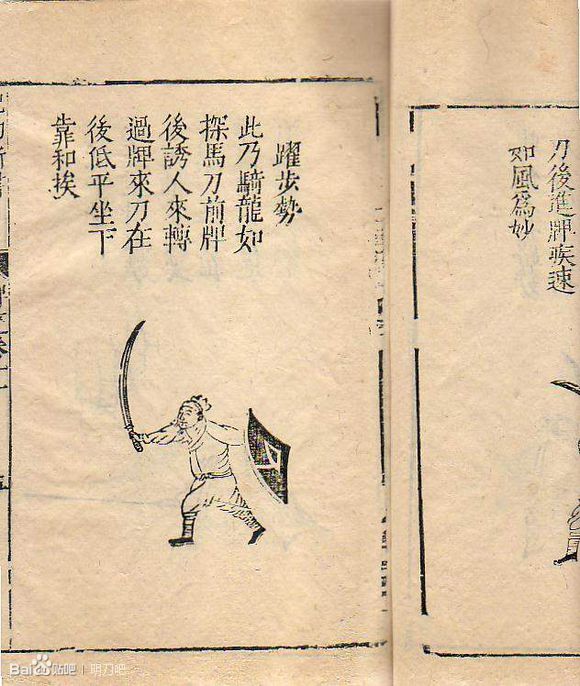 刀後進牌疾速
如風爲妙
躍步勢
此乃騎龍如
探馬刀前牌
後誘人來轉
過牌來刀在
後低平坐下
靠和挨
Bai贴吧 | 明刀吧